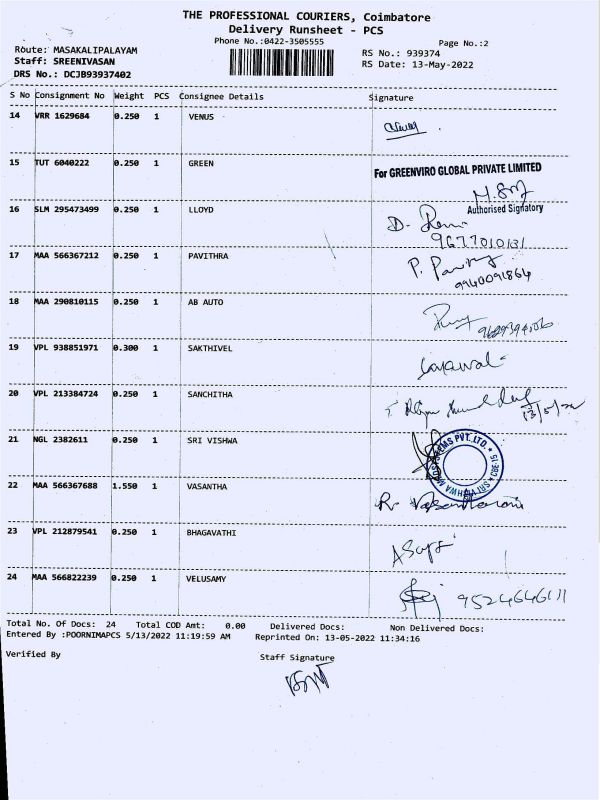 THE PROFESSIONAL COURIERS, Coimbatore
Delivery Runsheet - PCS
Phone No.:0422-3505555
Page No.:2
Route: MASAKALIPALAYAM
RS No.: 939374
Staff: SREENIVASAN
RS Date: 13-May-2022
DRS No.: DCJB93937402
S No Consignment No Weight PCS Consignee Details Signature
14 VRR 1629684 0.250 1 VENUS
15 TUT 6040222 0.250 1 GREEN
For GREENVIRO GLOBAL PRIVATE LIMITED
Authorised Signatory
16 SLM 295473499 0.250 1 LLOYD
9677010131
17 MAA 566367212 0.250 1 PAVITHRA
9940091864
18 MAA 290810115 0.250 1 AB AUTO
19 VPL 938851971 0.300 1 SAKTHIVEL
20 VPL 213384724 0.250 1 SANCHITHA
13/5/22
21 NGL 2382611 0.250 1 SRI VISHWA
22 MAA 566367688 1.550 1 VASANTHA
23 VPL 212879541 0.250 1 BHAGAVATHI
24 MAA 566822239 0.250 1 VELUSAMY
Total No. Of Docs: 24 Total COD Amt: 0.00 Delivered Docs: Non Delivered Docs:
Entered By :POORNIMAPCS 5/13/2022 11:19:59 AM Reprinted On: 13-05-2022 11:34:16
Verified By Staff Signature